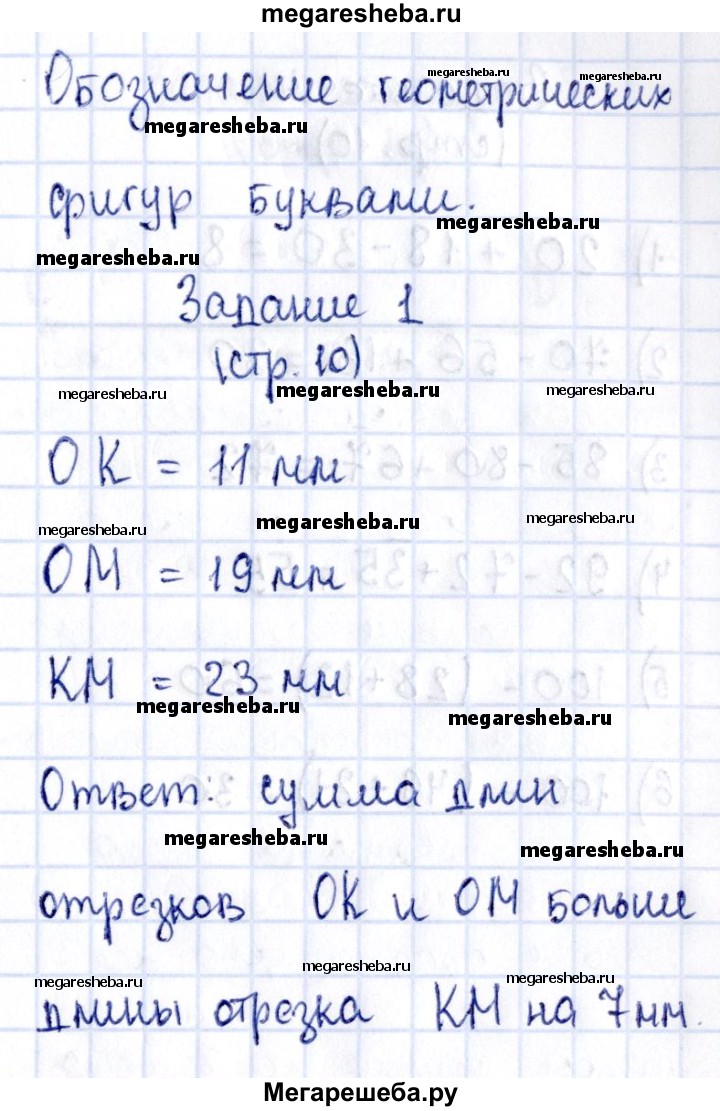 megaresheba.ru
Обозначение геометрических
megaresheba.ru
megaresheba.ru
megaresheba.ru
фигур буквами.
megaresheba.ru
megaresheba.ru
Задание 1
(стр. 10)
megaresheba.ru
megaresheba.ru
megaresheba.ru
ОК = 11 мм
megaresheba.ru
megaresheba.ru
megaresheba.ru
ОМ = 19 мм
КМ = 23 мм
megaresheba.ru
megaresheba.ru
Ответ: сумма длин
megaresheba.ru
megaresheba.ru
отрезков ОК и ОМ больше
megaresheba.ru
megaresheba.ru
megaresheba.ru
длины отрезка КМ на 7 мм.
Мегарешеба.ру